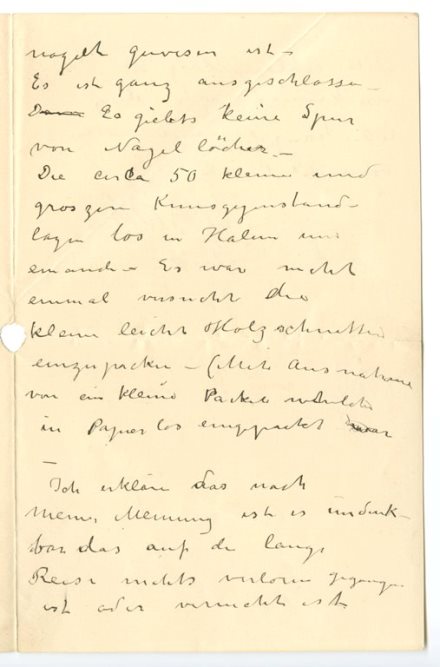 nagelt gewesen ist –
Es ist ganz ausgeschlossen –
Es giebts keine Spur
von Nagel löcher –
Die circa 50 kleine und
groszen Kunsgegenstand –
lagen los in Halm
Es war nicht
einmal versucht die
kleine leicht Holzschnitte
einzupacken – (Mit Ausnahme
von ein kleine Packet welche
in Papier los eingepackt war
–
Ich erkläre das nach
meiner Meinung ist es undenk –
bar das auf die lange
Reise nichts verloren gegangen
ist oder vernicht ist